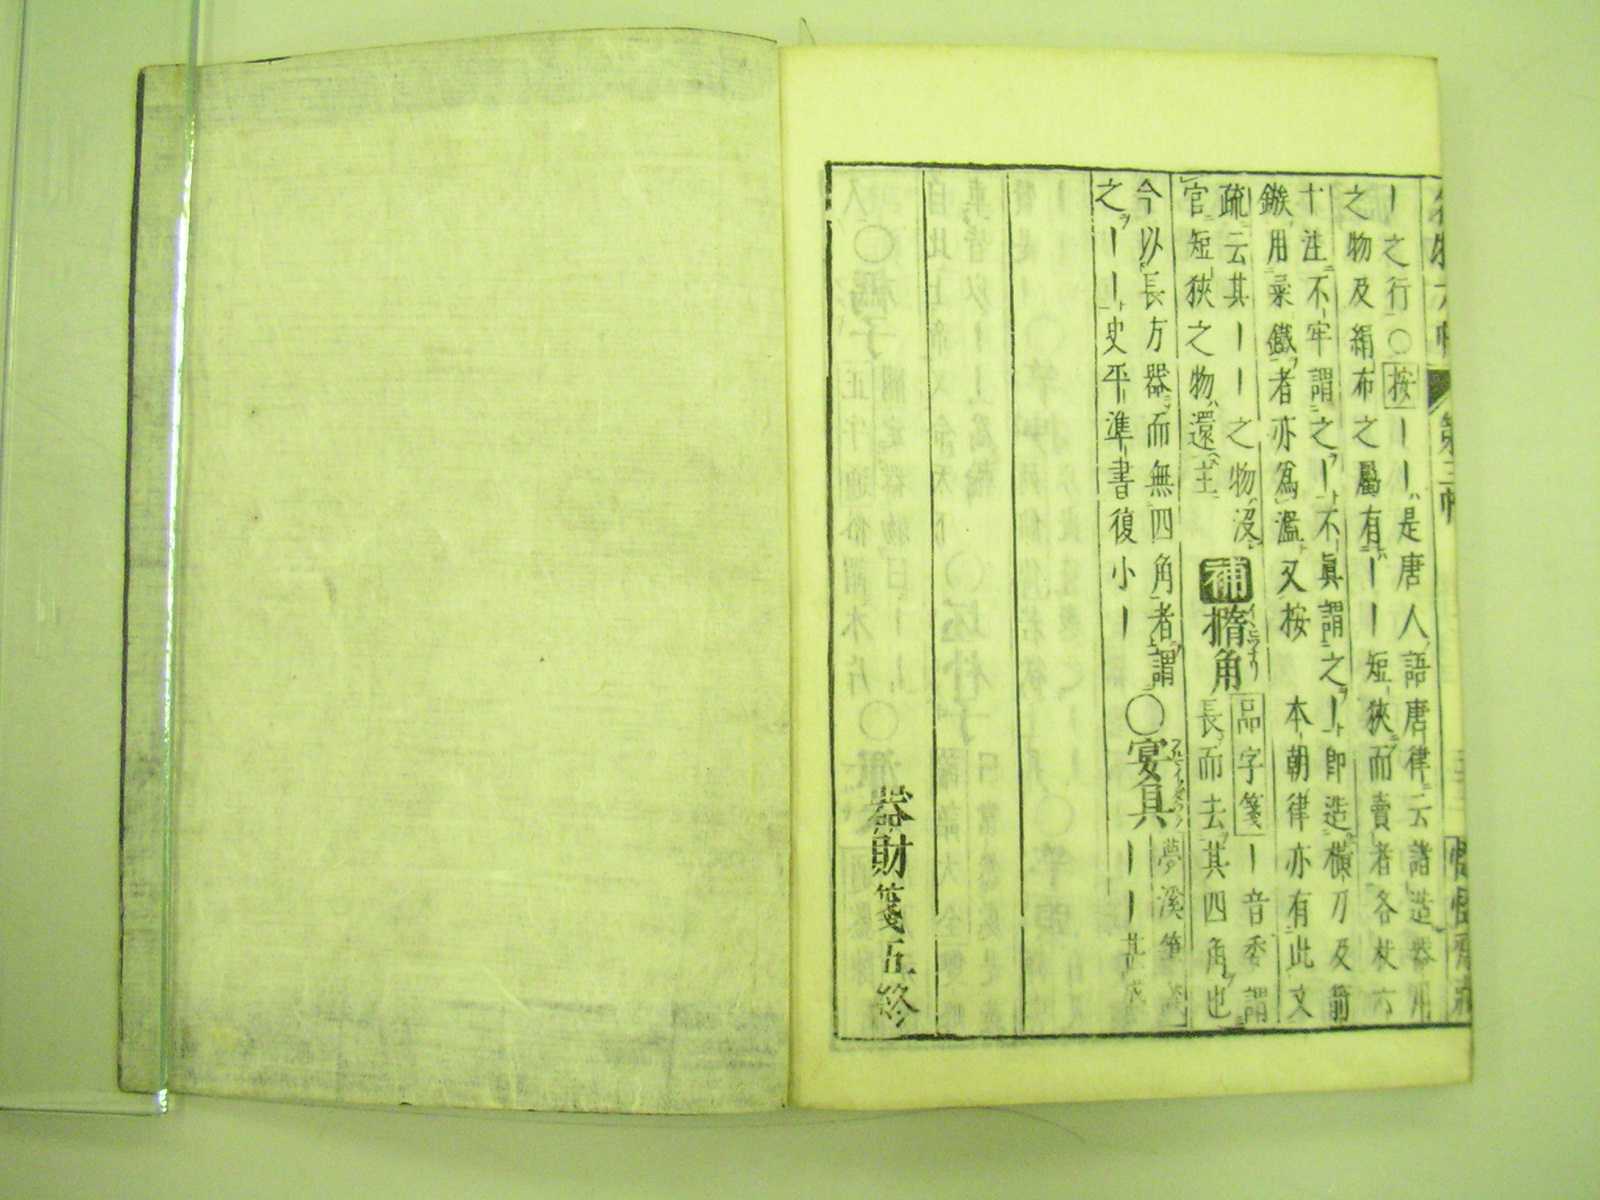 第三帖
丨之行〇按丨丨是唐人語唐律云諸造器用
之物及絹布之屬有丨丨短狹而賣者各杖六
十注不牢謂之丨不眞謂之丨即造橫刀及箭
鏃用柔鐵者亦爲濫又按　本朝律亦有此文
疏云其丨丨之物没
官短狹之物還主
補橢角
品字箋丨音委謂
長而去其四角也
今以長方器而無四角者謂
之丨丨史平準書復小丨
〇宴具
夢溪筆談
丨丨甚盛
器財箋五終